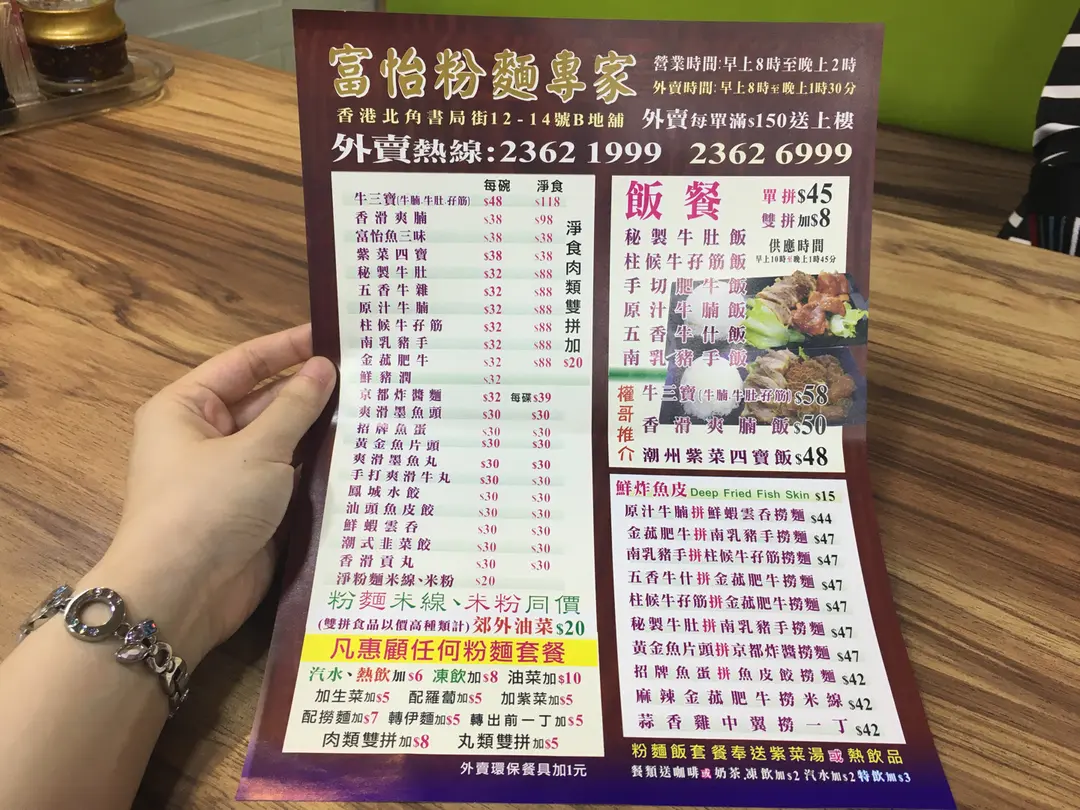 富怡粉麵專家
營業時間:早上8時至晚上2時
外賣時間:早上8時至晚上1時30分
香港北角書局街12-14號B地舖
外賣每單滿$150送上樓
外賣熱線:2362 1999 2362 6999
每碗 淨食
牛三寶(牛腩.牛肚.孖筋) $48 $118
香滑爽腩 $38 $98
富怡魚三味 $38 $38
紫菜四寶 $38 $38
秘製牛肚 $32 $88
五香牛雜 $32 $88
原汁牛腩 $32 $88
柱候牛孖筋 $32 $88
南乳豬手 $32 $88
金菰肥牛 $32 $88
淨食肉類雙拼加$20
鮮豬潤 $32
京都炸醬麵 $32 每碟$39
爽滑墨魚頭 $30 $30
招牌魚蛋 $30 $30
黃金魚片頭 $30 $30
爽滑墨魚丸 $30 $30
手打爽滑牛丸 $30 $30
鳳城水餃 $30 $30
汕頭魚皮餃 $30 $30
鮮蝦雲吞 $30 $30
潮式韭菜餃 $30 $30
香滑貢丸 $30 $30
淨粉麵米線、米粉 $20
粉麵米線、米粉同價
(雙拼食品以價高種類計) 郊外油菜$20
凡惠顧任何粉麵套餐
汽水、熱飲加$6 凍飲加$8 油菜加$10
加生菜加$5 配羅蔔加$5 加紫菜加$5
配撈麵加$7 轉伊麵加$5 轉出前一丁加$5
肉類雙拼加$8 丸類雙拼加$5
外賣環保餐具加1元
飯餐
單拼$45
雙拼加$8
供應時間
早上10時至晚上1時45分
秘製牛肚飯
柱候牛孖筋飯
手切肥牛飯
原汁牛腩飯
五香牛什飯
南乳豬手飯
權哥推介
牛三寶(牛腩.牛肚.孖筋)$58
香滑爽腩飯$50
潮州紫菜四寶飯$48
鮮炸魚皮 Deep Fried Fish Skin $15
原汁牛腩拼鮮蝦雲吞撈麵 $44
金菰肥牛拼南乳豬手撈麵 $47
南乳豬手拼柱候牛孖筋撈麵 $47
五香牛什拼金菰肥牛撈麵 $47
柱候牛孖筋拼金菰肥牛撈麵 $47
秘製牛肚拼南乳豬手撈麵 $47
黃金魚片頭拼京都炸醬撈麵 $47
招牌魚蛋拼魚皮餃撈麵 $42
麻辣金菰肥牛撈米線 $42
蒜香雞中翼撈一丁 $42
粉麵飯套餐奉送紫菜湯或熱飲品
餐類送咖啡或奶茶,凍飲加$2 汽水加$2 特飲加$3